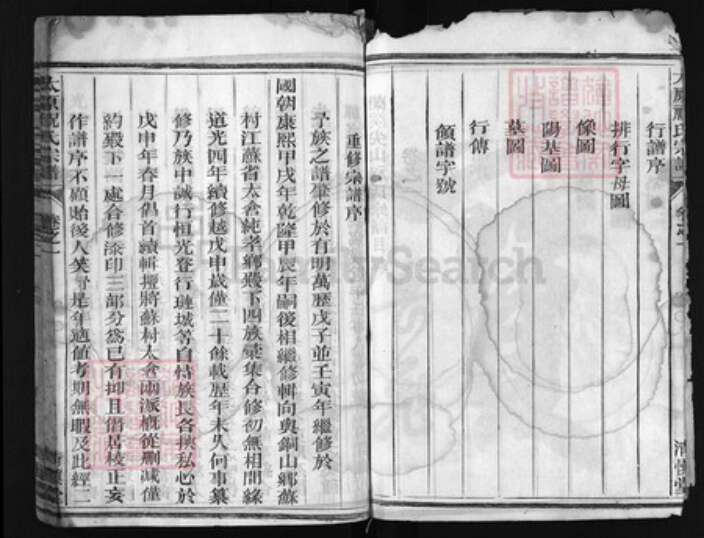 行譜序
排行字母圖
像圖
陽基圖
墓圖
行傳
領譜字號
重修宗譜序
予族之譜肇修於有明萬歷戊子並壬寅年繼修於
國朝康熙甲戌年乾隆甲辰年嗣後相繼修輯向與銅山鄉蘇
村江蘇省太倉純孝鄉殿下四族彙集合修初無相間緣
道光四年續修越戊申歲僅二十餘載歷年未久何事纂
修乃族中誠行恒光登行璉城等自恃族長各挾私心於
戊申年春月倡首續輯擅將蘇村太倉兩派概從刪減僅
約殿下一處合修添印三部分為已有抑且僭居校正妄
作譜序不顧貽後人笑
是年適值考期無暇及此經二
太原祝氏宗譜
卷之一
FamilySearch